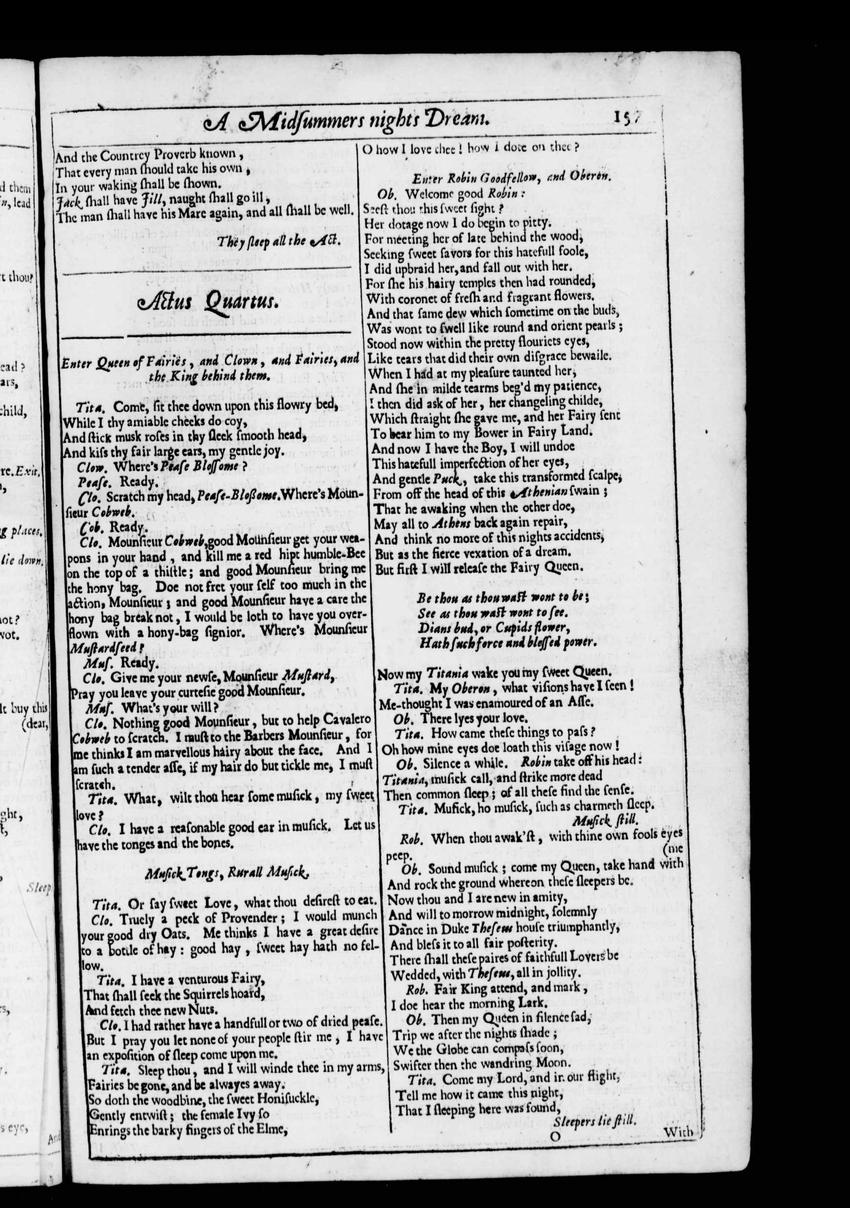 A Midſummers nights Dream. 157
And the Countrey Proverb known,
That every man ſhould take his own,
In your waking ſhall be ſhown.
Jack ſhall have Jill, naught ſhall go ill,
The man ſhall have his Mare again, and all ſhall be well.
They ſleep all the Act.
Actus Quartus.
Enter Queen of Fairies, and Clown, and Fairies, and
the King behind them.
Tita. Come, ſit thee down upon this flowry bed,
While I thy amiable cheeks do coy,
And ſtick musk roſes in thy ſleek ſmooth head,
And kiſs thy fair large ears, my gentle joy.
Clow. Where's Peaſe Bloſſome?
Peaſe. Ready.
Clo. Scratch my head, Peaſe-Bloßome. Where's Moun-
ſieur Cobweb.
Cob. Ready.
Clo. Mounſieur Cobweb, good Mounſieur get your wea-
pons in your hand, and kill me a red hipt humble-Bee
on the top of a thiſtle; and good Mounſieur bring me
the hony bag. Doe not fret your ſelf too much in the
action, Mounſieur; and good Mounſieur have a care the
hony bag break not, I would be loth to have you over-
flown with a hony-bag ſignior. Where's Mounſieur
Muſtardſeed?
Muſ. Ready.
Clo. Give me your newſe, Mounſieur Muſtard,
Pray you leave your curteſie good Mounſieur.
Muſ. What's your will?
Clo. Nothing good Mounſieur, but to help Cavalero
Cobweb to ſcratch. I muſt to the Barbers Mounſieur, for
me thinks I am marvellous hairy about the face. And I
am ſuch a tender aſſe, if my hair do but tickle me, I muſt
ſcratch.
Tita. What, wilt thou hear ſome muſick, my ſweet
love?
Clo. I have a reaſonable good ear in muſick. Let us
have the tonges and the bones.
Muſick Tongs, Rurall Muſick.
Tita. Or ſay ſweet Love, what thou deſireſt to eat.
Clo. Truely a peck of Provender; I would munch
your good dry Oats. Me thinks I have a great deſire
to a bottle of hay: good hay, ſweet hay hath no fel-
low.
Tita. I have a venturous Fairy,
That ſhall ſeek the Squirrels hoard,
And fetch thee new Nuts.
Clo. I had rather have a handfull or two of dried peaſe.
But I pray you let none of your people ſtir me, I have
an expoſition of ſleep come upon me.
Tita. Sleep thou, and I will winde thee in my arms,
Fairies be gone, and be alwayes away.
So doth the woodbine, the ſweet Honiſuckle,
Gently entwiſt; the female Ivy ſo
Enrings the barky fingers of the Elme,
O how I love thee! how I dote on thee?
Enter Robin Goodfellow, and Oberon.
Ob. Welcome good Robin:
Seeſt thou this ſweet ſight?
Her dotage now I do begin to pitty.
For meeting her of late behind the wood,
Seeking ſweet ſavors for this hatefull foole,
I did upbraid her, and fall out with her.
For ſhe his hairy temples then had rounded,
With coronet of freſh and fragrant flowers.
And that ſame dew which ſometime on the buds,
Was wont to ſwell like round and orient pearls;
Stood now within the pretty flouriets eyes,
Like tears that did their own diſgrace bewaile.
When I had at my pleaſure taunted her,
And ſhe in milde tearms beg'd my patience,
I then did ask of her, her changeling childe,
Which ſtraight ſhe gave me, and her Fairy ſent
To bear him to my Bower in Fairy Land.
And now I have the Boy, I will undoe
This hatefull imperfection of her eyes,
And gentle Puck, take this transformed ſcalpe,
From off the head of this Athenian ſwain;
That he awaking when the other doe,
May all to Athens back again repair,
And think no more of this nights accidents,
But as the fierce vexation of a dream.
But firſt I will releaſe the Fairy Queen.
Be thou as thou waſt wont to be;
See as thou waſt wont to ſee.
Dians bud, or Cupids flower,
Hath ſuch force and bleſſed power.
Now my Titania wake you my ſweet Queen.
Tita. My Oberon, what viſions have I ſeen!
Me-thought I was enamoured of an Aſſe.
Ob. There lyes your love.
Tita. How came theſe things to paſs?
Oh how mine eyes doe loath this viſage now!
Ob. Silence a while. Robin take off his head:
Titania, muſick call, and ſtrike more dead
Then common ſleep; of all theſe find the ſenſe.
Tita. Muſick, ho muſick, ſuch as charmeth ſleep.
Muſick ſtill.
Rob. When thou awak'ſt, with thine own fools eyes
peep. (me
Ob. Sound muſick; come my Queen, take hand with
And rock the ground whereon theſe ſleepers be.
Now thou and I are new in amity,
And will to morrow midnight, ſolemnly
Dance in Duke Theſeus houſe triumphantly,
And bleſs it to all fair poſterity.
There ſhall theſe paires of faithfull Lovers be
Wedded, with Theſeus, all in jollity.
Rob. Fair King attend, and mark,
I doe hear the morning Lark.
Ob. Then my Queen in ſilence ſad,
Trip we after the nights ſhade;
We the Globe can compaſs ſoon,
Swifter then the wandring Moon.
Tita. Come my Lord, and in our flight,
Tell me how it came this night,
That I ſleeping here was found,
Sleepers lie ſtill.
O With